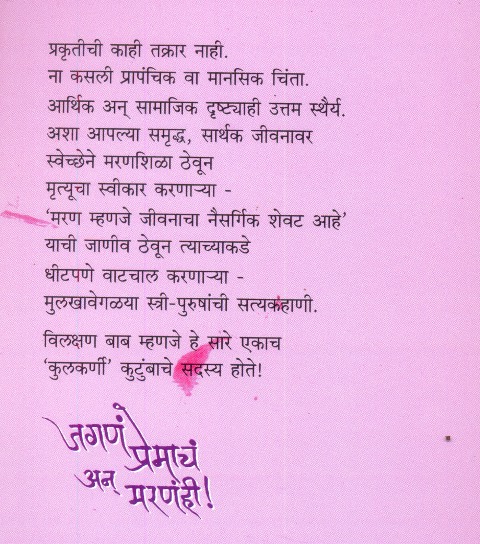 प्रकृतीची काही तक्रार नाही.
ना कसली प्रापंचिक वा मानसिक चिंता.
आर्थिक अन् सामाजिक दृष्ट्याही उत्तम स्थैर्य.
अशा आपल्या समृद्ध, सार्थक जीवनावर
स्वेच्छेने मरणशिळा ठेवून
मृत्यूचा स्वीकार करणाऱ्या -
‘मरण म्हणजे जीवनाचा नैसर्गिक शेवट आहे’
याची जाणीव ठेवून त्याच्याकडे
धीटपणे वाटचाल करणाऱ्या -
मुलखावेगळया स्त्री-पुरुषांची सत्यकहाणी.
विलक्षण बाब म्हणजे हे सारे एकाच
‘कुलकर्णी’ कुटुंबाचे सदस्य होते!
जगणं
प्रेमाचं
अन्
मरणंही!